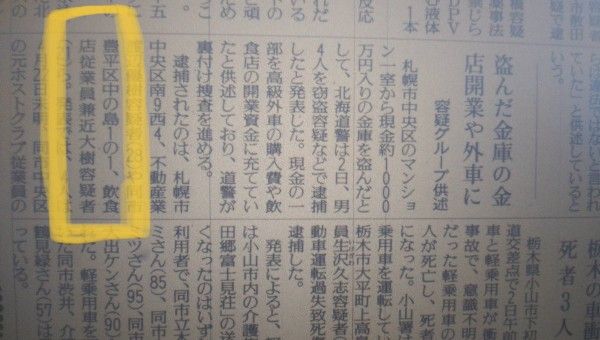 らは違法ではないと言われ
ていた」と供述していると
盗んだ金庫の金
店開業や外車に
容疑グループ供述
札幌市中央区のマンショ
ン一室から現金約1000
万円入りの金庫を盗んだと
して、北海道警は2日、男
4人を窃盗容疑などで逮捕
したと発表した。現金の一
部を高級外車の購入費や飲
食店の開業資金に充ててい
たと供述しており、道警が
裏付け捜査を進める。
逮捕されたのは、札幌市
中央区南9西4、不動産業
優樹容疑者(28)や同市
豊平区中の島1の1、飲食
店従業員兼近大樹容疑者
ら。発表では、
4月22日未明、同市中央区
の元ホストクラブ従業員の
栃木の車衝
死者3人
栃木県小山市下初
道交差点で2日午前
車と軽乗用車が衝
事故で、意識不明
だった軽乗用車の
人が死亡し、死者
になった。小山署は
乗用車を運転してい
栃木市大平町上高島
員生沢久志容疑者(
動車運転過失致死
逮捕した。
発表によると、
は小山市内の介護
田郷富士見荘」の送
くなったのはいず
利用者で、同市立木
ミさん(85)、同市
ツさん(95)、同市
出ケンさん(90)
た。軽乗用車を
た同市渋井、介
鶴見緑さん(57)は
っている。